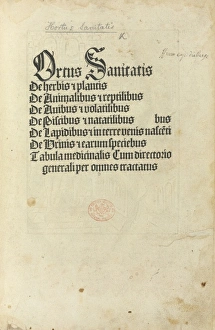 Hortus Sanitatis
Ortus Sanitatis
De herbis ⁊ plantis
De Animalibus ⁊ reptilibus
De Auibus ⁊ volatilibus
De Piscibus ⁊ natatilibus bus
De Lapidibus ⁊ in terre venis nascẽti
De Urinis ⁊ earum speciebus
Tabula medicinalis Cum directorio
generali per omnes tractatus